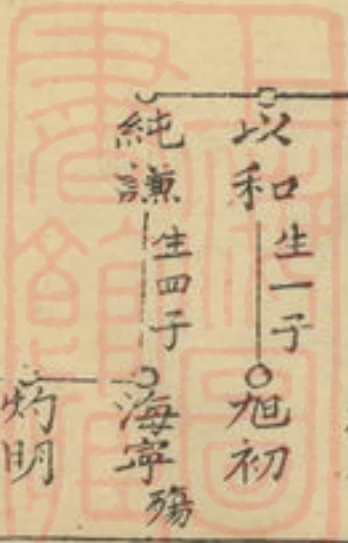 以和 生一子
旭初
純謙 生四子
海寧 殤
灼明